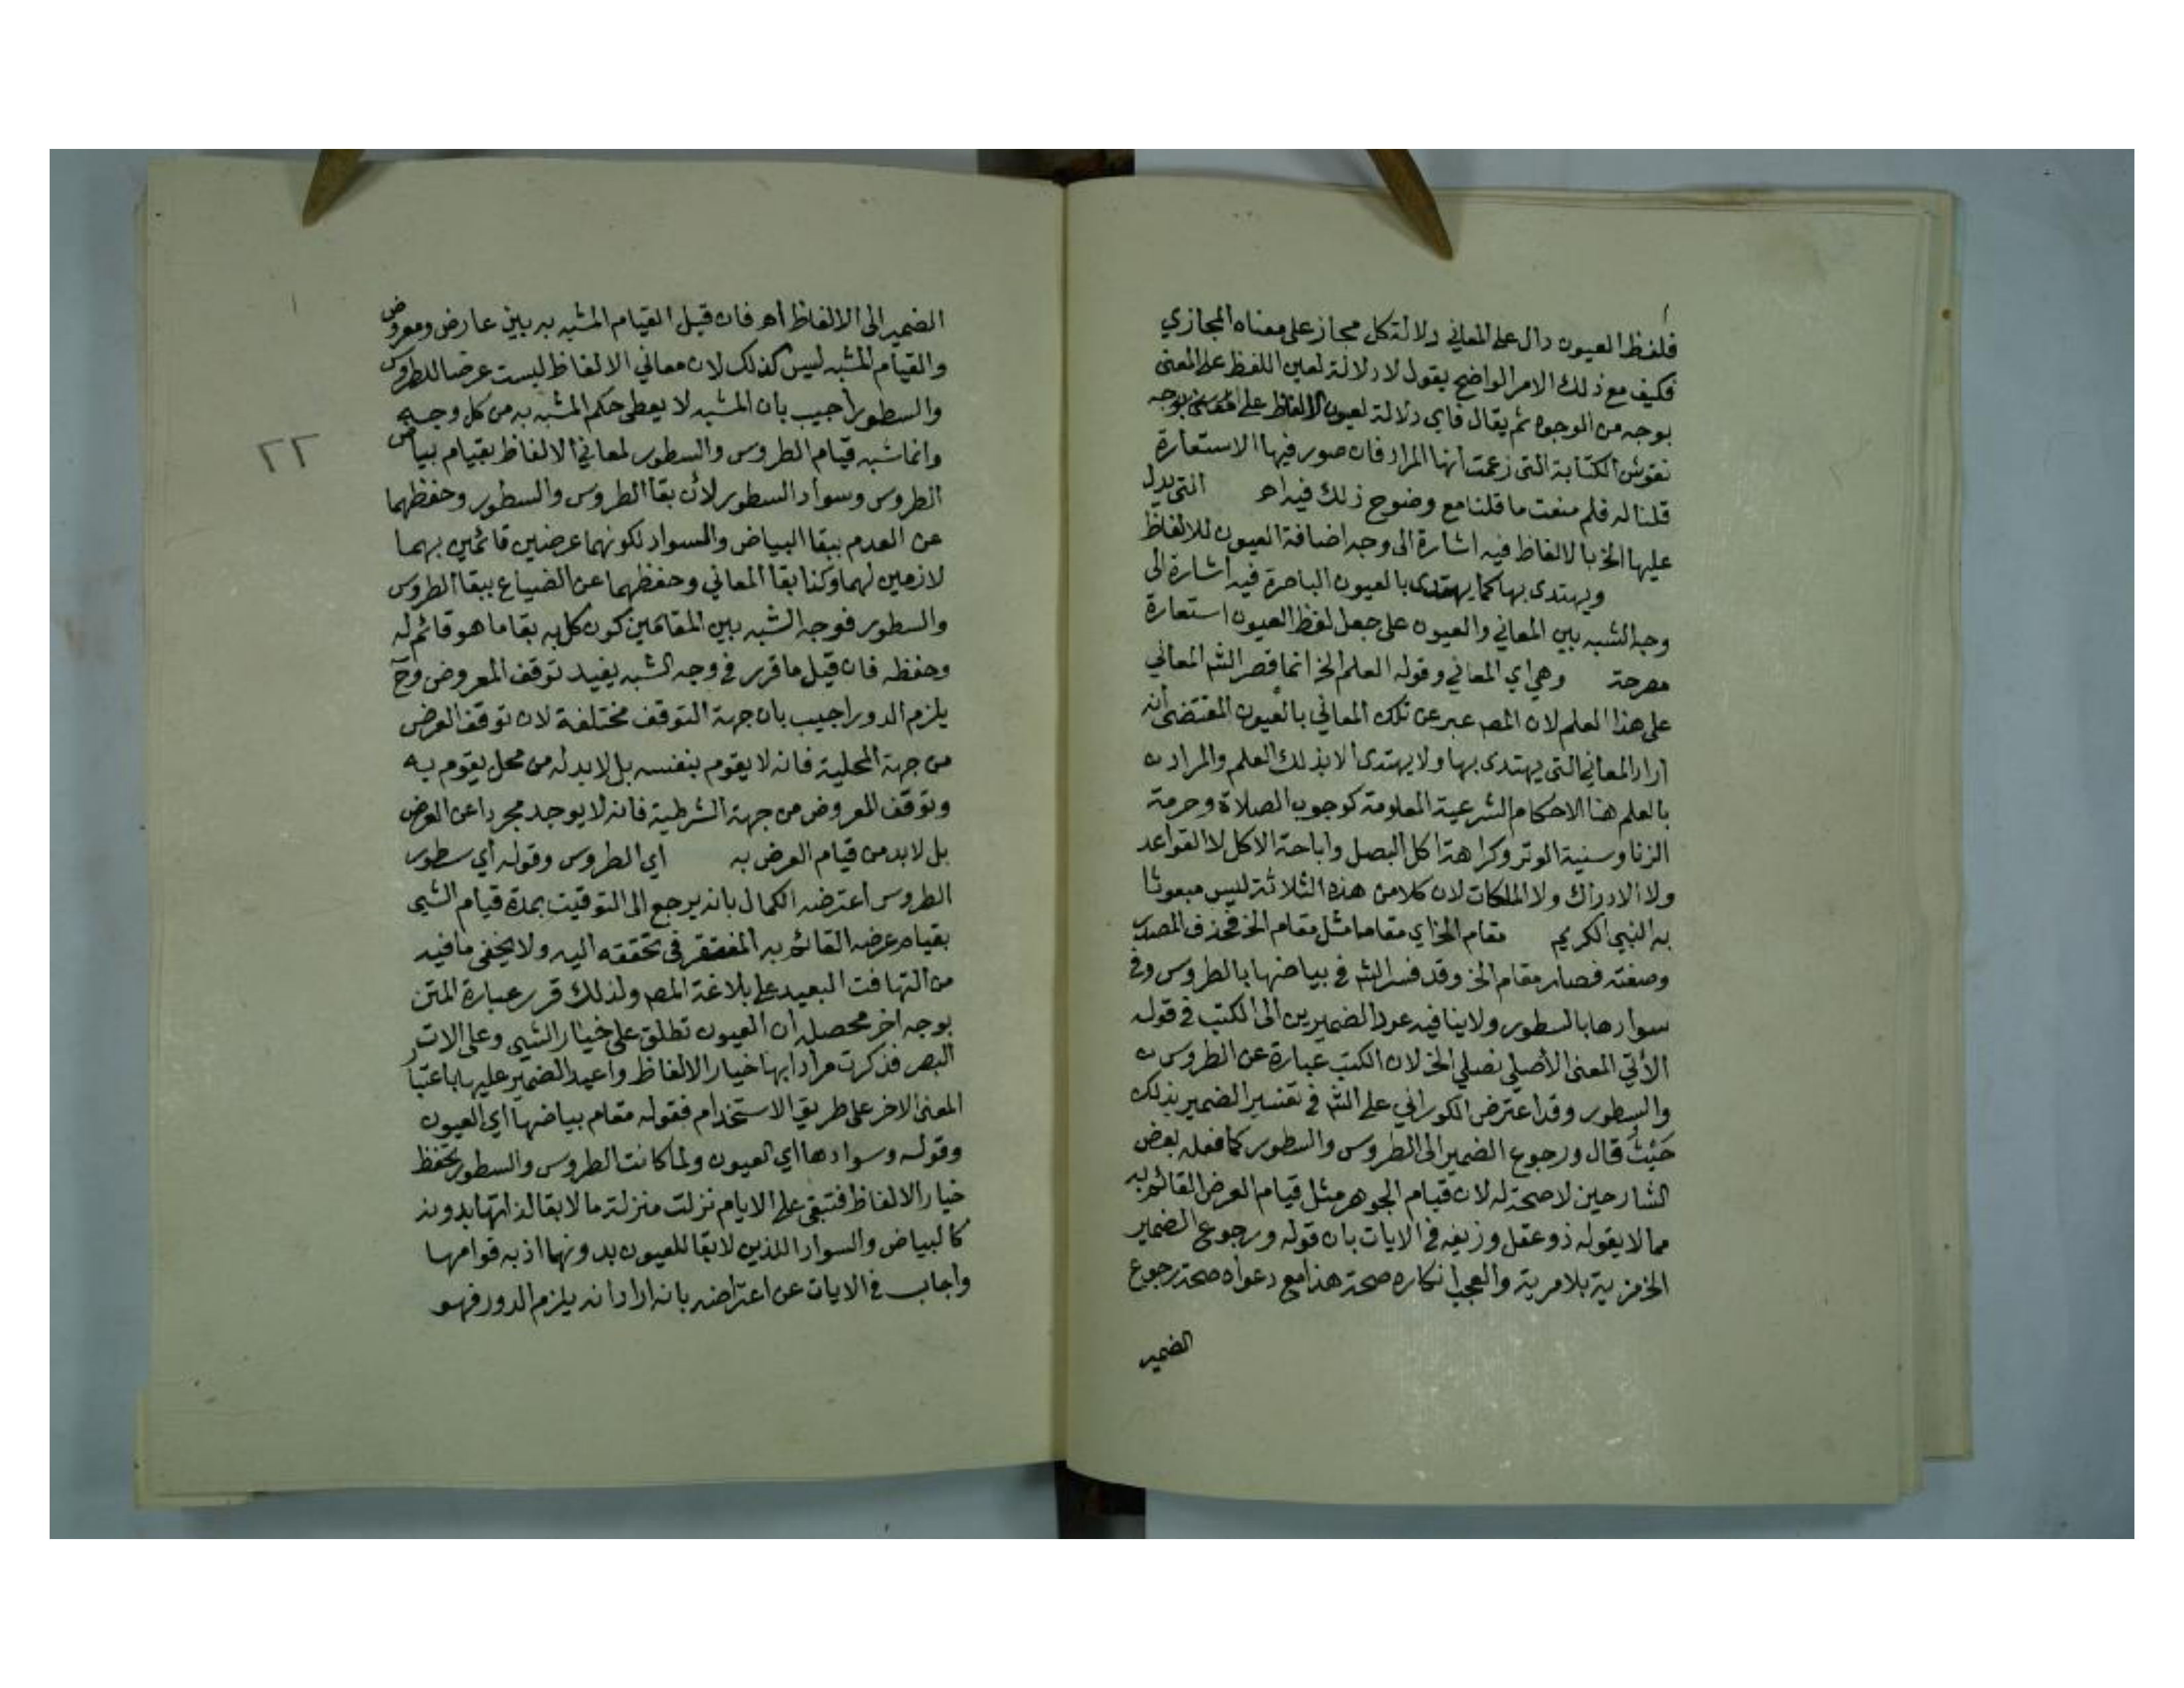 فلفظ العيون دال على المعاني دلالة كل مجاز على معناه المجازي
فكيف مع ذلك الامر الواضح يقول لا دلالة لعين اللفظ على المعنى
بوجه من الوجوه ثم يقال فاي دلالة لعيون الالفاظ على بوجه
نقوش الكتابة التي زعمت انها المراد فان صور فيها الاستعارة
قلنا له فلم منعت ما قلنا مع وضوح ذلك فيه اه التي يدل
عليها الخ بالالفاظ فيه اشارة الى وجه اضافة العيون للالفاظ
ويهتدى بها كما يهتدى بالعيون الباصرة فيه اشارة الى
وجه الشبه بين المعاني والعيون على جعل لفظ العيون استعارة
مصرحة وهي اي المعاني وقوله العلم الخ انما قصر الشم المعاني
على هذا العلم لان المصـ عبر عن تلك المعاني بالعيون المقتضى أنه
اراد المعاني التي يهتدى بها ولا يهتدى الا بذلك العلم والمراد ن
بالعلم هنا الاحكام الشرعية المعلومة كوجوب الصلاة وحرمة
الزنا وسنية الوتر وكراهة اكل البصل واباحة الاكل لا القواعد
ولا الادراك ولا الملكات لان كلا من هذه الثلاثة ليس مبعوثا
به النبي الكريم مقام الخ اي مقاما مثل مقام الخ فحذف المصدر
وصفته فصار مقام الخ وقد فسر الشم في بياضها بالطروس وفي
سوادها بالسطور ولا ينافيه عود الضميرين الى الكتب في قوله
الأتي المعنى الأصلي نصلي الخ لان الكتب عبارة عن الطروس ن
والسطور وقد اعترض الكوراني على الشم في تفسير الضمير بذلك
حَيْثُ قال ورجوع الضمير الى الطروس والسطور كما فعله بعض
الشارحين لا صحة له لان قيام الجوهر مثل قيام العرض القائم به
مما لا يقوله ذو عقل وزيفه في الايات بان قوله ورجوع الضمير
الخ مزية بلا مرية والعجب انكاره صحة هذا مع دعواه صحة رجوع
الضمير
الضمير الى الالفاظ اه فان قيل القيام المشبه به بين عارض ومعروض
والقيام المشبه ليس كذلك لان معاني الالفاظ ليست عرضا للطروس
والسطور أجيب بان المشبه لا يعطى حكم المشبه به من كل وجه
٢٢
وانما شبه قيام الطروس والسطور لمعاني الالفاظ بقيام بياض
الطروس وسواد السطور لأن بقا الطروس والسطور وحفظهما
عن العدم ببقا البياض والسواد لكونهما عرضين قائمين بهما
لازمين لهما وكذا بقا المعاني وحفظهما عن الضياع ببقا الطروس
والسطور فوجه الشبه بين المقامين كون كل به بقا ما هو قائم له
وحفظه فان قيل ما قرر في وجه الشبه يفيد توقف المعروض وح
يلزم الدور اجيب بان جهة التوقف مختلفة لان توقف العرض
من جهة المحلية فانه لا يقوم بنفسه بل لا بد له من محل يقوم به
وتوقف المعروض من جهة الشرطية فانه لا يوجد مجردا عن العرض
بل لا بد من قيام العرض به اي الطروس وقوله اي سطور
الطروس اعترضه الكمال بانه يرجع الى التوقيت بمدة قيام الشيى
بقيام عرضه القائم به المفتقر في تحققه اليه ولا يخفى ما فيه
من التهافت البعيد على بلاغة المصـ ولذلك قرر عبارة المتن
بوجه اخر محصله ان العيون تطلق على خيار الشيى وعلى الات
البصر فذكرت مرادا بها خيار الالفاظ واعيد الضمير عليها باعتبار
المعنى الاخر على طريق الاستخدام فقوله مقام بياضها اي العيون
وقوله وسوادها اي العيون ولما كانت الطروس والسطور تحفظ
خيار الالفاظ فتبقى على الايام نزلت منزلة ما لا بقا لذاتها بدونه
كالبياض والسواد اللذين لا بقا للعيون بدونهما اذ به قوامها
واجاب في الايات عن اعتراضه بانه اراد انه يلزم الدور فهو